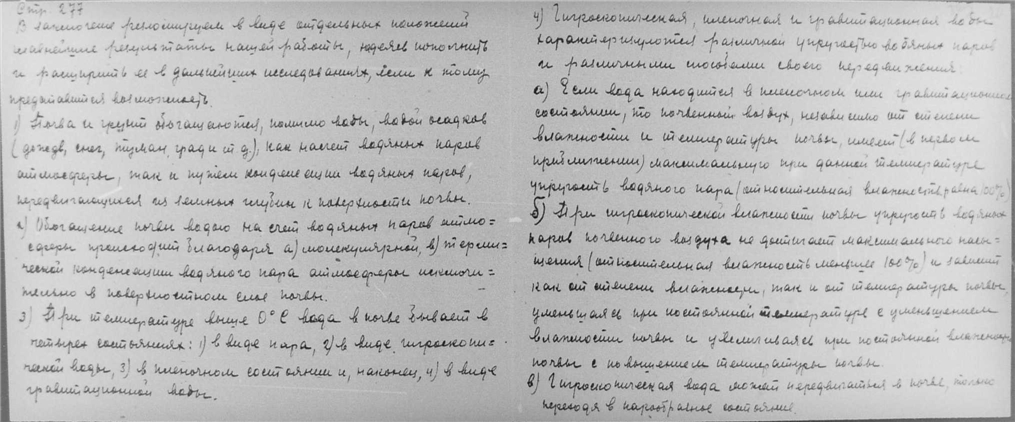 Стр. 277
В заключение резюмируем в виде отдельных положений
главнейшие результаты нашей работы, надеясь пополнить
и расширить ее в дальнейших исследованиях, если к тому
представится возможность.
1) Почва и грунт обогащаются, помимо воды, водой осадков
(дождь, снег, туман, град и т д.), как насчет водяных паров
атмосферы, так и путем конденсации водяных паров,
передвигающихся из земных глубин к поверхности почвы.
2) Обогащение почвы водою на счет водяных паров атмо=
сферы происходит благодаря а) молекулярной, в) терми=
ческой конденсации водяного пара атмосферы исключи=
тельно в поверхностном слое почвы.
3) При температуре выше 0° С вода в почве бывает в
четырех состояниях: 1) в виде пара, 2) в виде гигроскопи=
ческой воды, 3) в пленочном состоянии и, наконец, 4) в виде
гравитационной воды.
4) Гигроскопическая, пленочная и гравитационная воды
характеризуются различной упругостью водяных паров
и различными способами своего передвижения:
а) Если вода находится в пленочном или гравитационном
состоянии, то почвенный воздух, независимо от степени
влажности и температуры почвы, имеет (в первом
приближении) максимальную при данной температуре
упругость водяного пара (относительная влажность равна 100%)
б) При гигроскопической влажности почвы упругость водяных
паров почвенного воздуха не достигает максимального насы=
щения (относительная влажность меньше 100%) и зависит
как от степени влажности, так и от температуры почвы,
уменьшаясь при постоянной температуре с уменьшением
влажности почвы и увеличиваясь при постоянной влажности
почвы с повышением температуры почвы.
в) Гигроскопическая вода может передвигаться в почве, только
переходя в парообразное состояние.